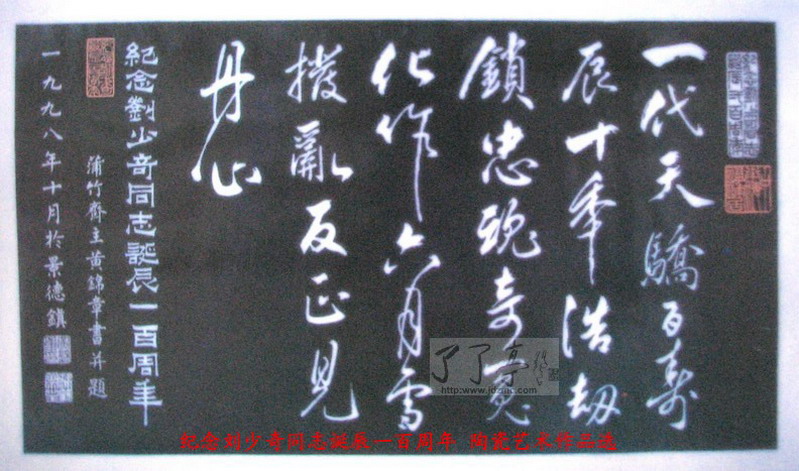 一代天驕百壽
辰十年浩劫
鎖忠魂奇冤
化作六月雪
撥亂反正見
丹心
紀念劉少奇同志誕辰一百周年
蒲竹齋主黃錦章書并題
一九九八年十月於景德鎮
了了亭
http://www.jdzmc.com
纪念刘少奇同志誕辰一百周年 陶瓷艺术作品选